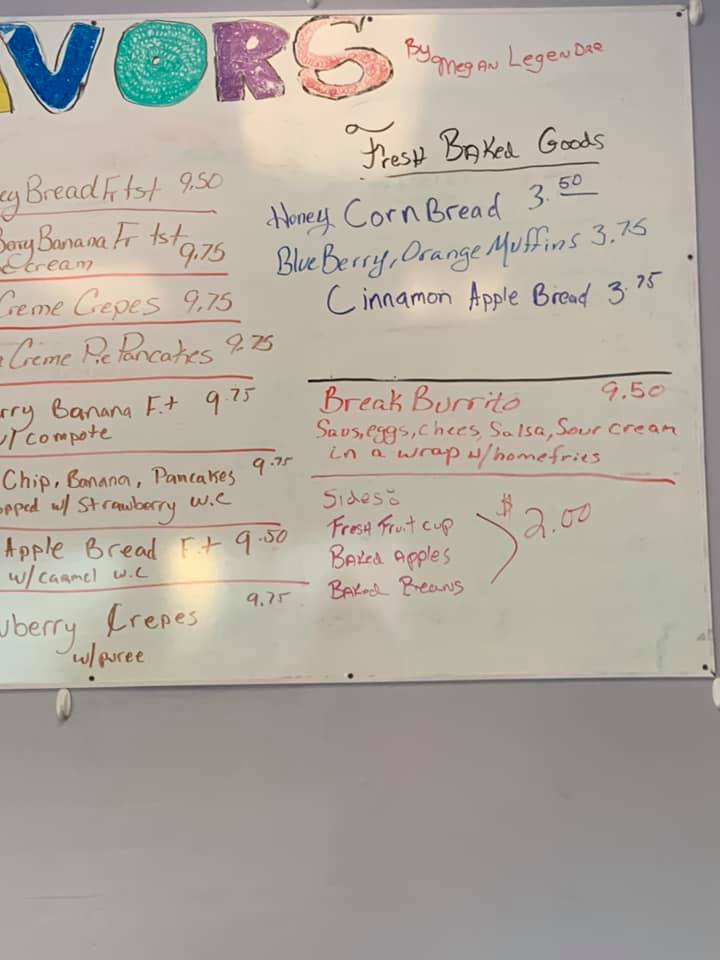 VORS
By Megan Legendre
ey Bread Fr tst 9.50
Berry Banana Fr tst
cream 9.75
Creme Crepes 9.75
Creme Pie Pancakes 9.75
rry Banana F.t 9.75
w/ compote
Chip, Banana, Pancakes 9.75
pped w/ Strawberry w.c
Apple Bread F.t 9.50
w/ caramel w.c
wberry Crepes 9.75
w/ puree
Fresh Baked Goods
Honey Corn Bread 3.50
BlueBerry, Orange Muffins 3.75
Cinnamon Apple Bread 3.75
Break Burrito 9.50
Saus, eggs, chees, Salsa, Sour cream
in a wrap w/ homefries
Sides:
Fresh Fruit cup
Baked Apples
Baked Beans
$2.00